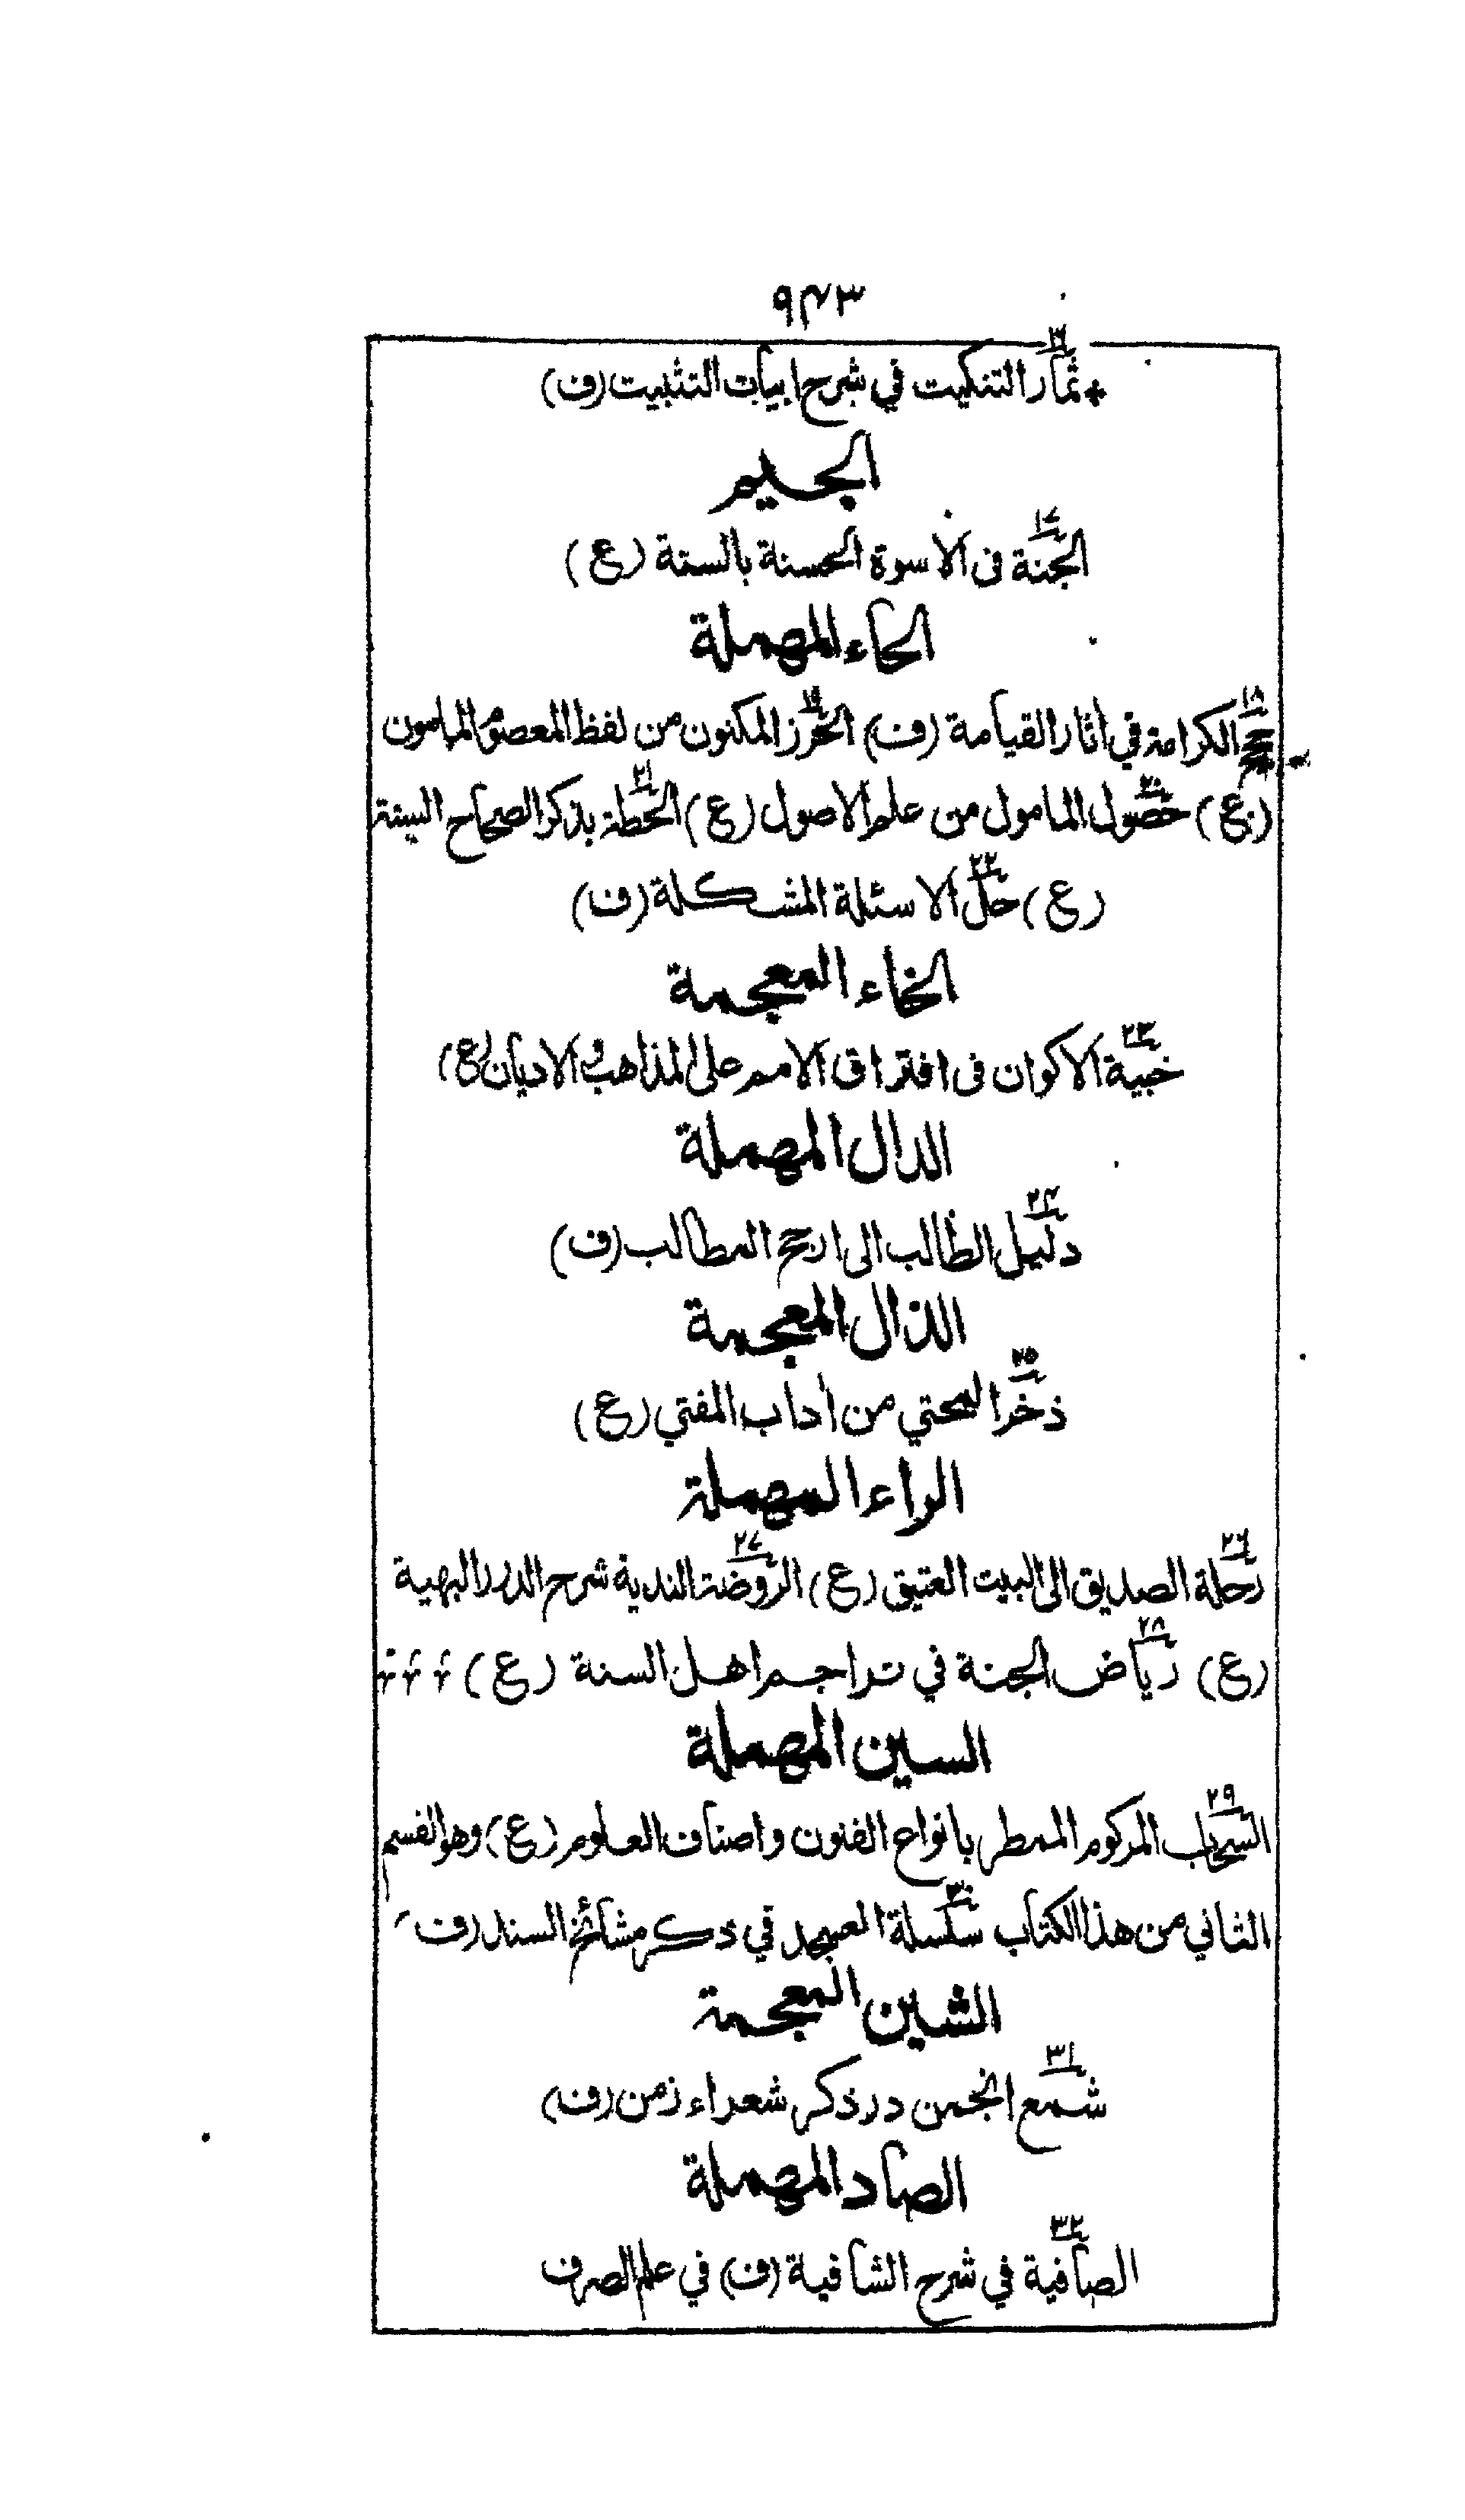 ٩٤٣
١٦
* ثمار التنكيت في شرح ابيات التثبيت (ف)
الجيم
١٧
الجنة فى الاسوة الحسنة بالسنة (ع)
الحاء المهملة
١٨ ١٩
حجج الكرامة في اثار القيامة (ف) الحرز المكنون من لفظ المعصوم المامون
٢٠ ٢١
(ع) حصول المامول من علم الاصول (ع) الحطة بذكر الصحاح الستة
٢٢
(ع) حل الاسئلة المشكلة (ف)
الخاء المعجمة
٢٣
خبية الاكوان فى افتراق الامم على المذاهب والاديان (ع)
الدال المهملة
٢٤
دليل الطالب الى ارجح المطالب (ف)
الذال المعجمة
٢٥
ذخر المحتي من اداب المفتي (ع)
الراء المهملة
٢٦ ٢٧
رحلة الصديق الى البيت العتيق (ع) الروضة الندية شرح الدرر البهية
٢٨
(ع) رياض الجنة في تراجم اهل السنة (ع)
السين المهملة
٢٩
السحاب المركوم الممطر بانواع الفنون واصناف العلوم (ع) وهو القسم
٣٠
الثاني من هذا الكتاب سلسلة العسجد في ذكر مشائخ السند (ف)
الشين المعجمة
٣١
شمع انجمن در ذكر شعراء زمن (ف)
الصاد المهملة
٣٢
الصافية في شرح الشافية (ف) في علم الصرف